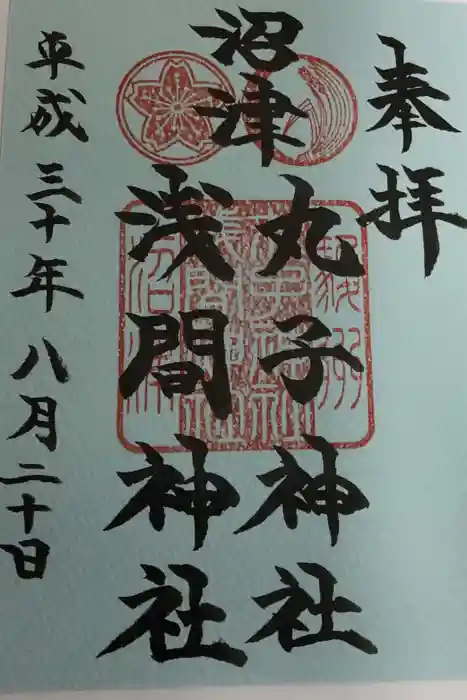 奉拝
沼津
丸子神社
浅間神社
平成三十年八月二十日